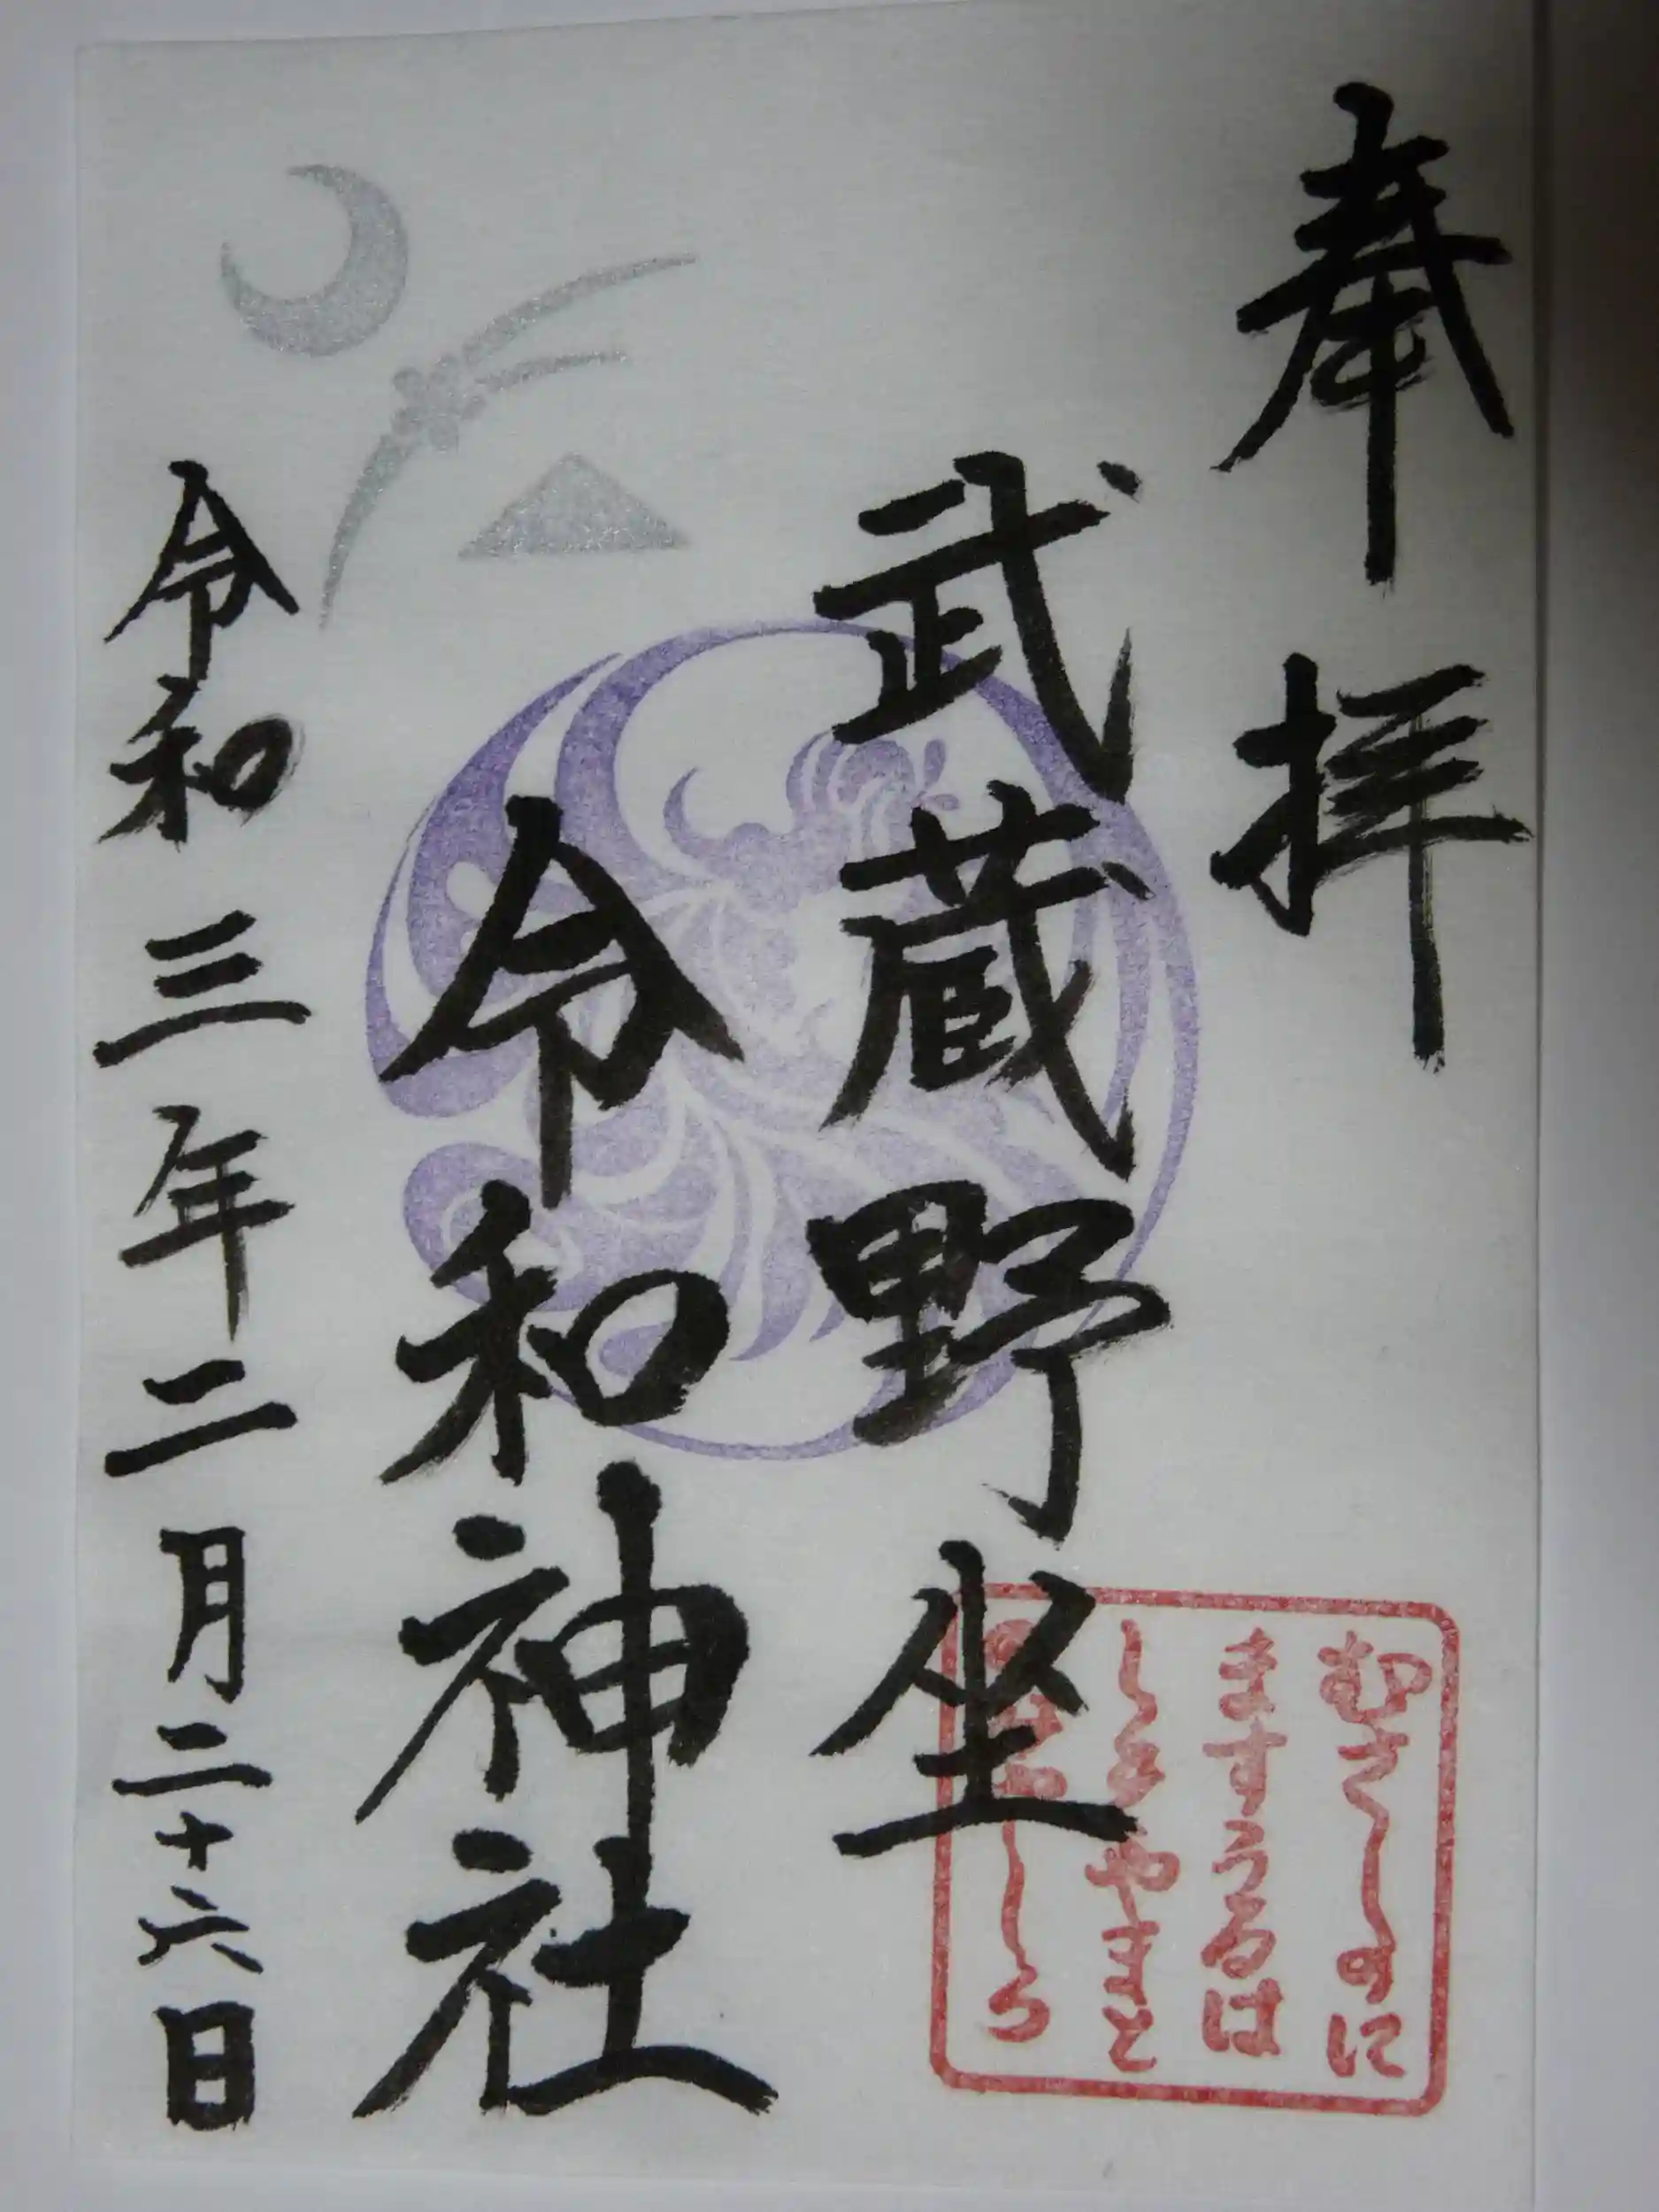 奉拝
武蔵野坐
令和神社
令和三年二月二十六日
むさしのに
ますうるは
しきやまと
しろ